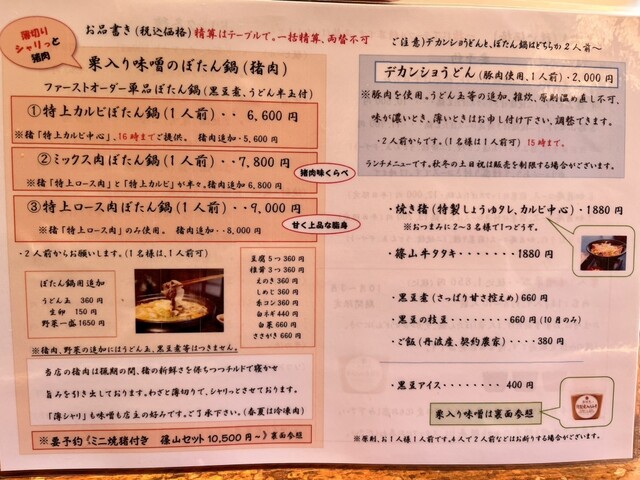 薄切り
シャリっと
猪肉
お品書き(税込価格) 精算はテーブルで。一括精算、両替不可
栗入り味噌のぼたん鍋(猪肉)
ファーストオーダー単品ぼたん鍋(黒豆煮、うどん半玉付)
①特上カルビぼたん鍋(1人前)・・6,600円
※猪「特上カルビ中心」、16時までご提供。 猪肉追加・5,600円
②ミックス肉ぼたん鍋(1人前)・・7,800円
猪肉味くらべ
※猪「特上ロース肉」と「特上カルビ」が半々。猪肉追加6,800円
③特上ロース肉ぼたん鍋(1人前)・・9,000円
甘く上品な脂身
※猪「特上ロース肉」のみ使用。 猪肉追加・・8,000円
・2人前からお願いします。(1名様は、1人前可)
ぼたん鍋用追加
うどん玉 360円
生卵 150円
野菜一盛1650円
豆腐5つ360円
椎茸3つ360円
えのき360円
しめじ360円
糸コン360円
白ネギ440円
白菜660円
ささがき660円
※猪肉、野菜の追加にはうどん玉、黒豆煮等はつきません。
当店の猪肉は猟期の間、猪の新鮮さを保ちつつチルドで寝かせ
旨みを引き出しております。わざと薄切りで、シャリっとさせております。
「薄シャリ」も味噌も店主の好みです。ご了承下さい。(春夏は冷凍肉)
※要予約《ミニ焼猪付き 篠山セット10,500円~》裏面参照
ご注意)デカンショうどんと、ぼたん鍋はどちらか2人前~
デカンショうどん(豚肉使用、1人前)・2,000円
※豚肉を使用。うどん玉等の追加、雑炊、原則温め直し不可、
味が濃いとき、薄いときはお申し付け下さい、調整できます。
・2人前からです。(1名様は1人前可) 15時まで。
ランチメニューです。秋冬の土日祝は販売を制限する場合がございます。
・焼き猪(特製しょうゆタレ、カルビ中心)・1880円
※おつまみに2~3名様で1つどうぞ。
・篠山牛タタキ・・・・・・・・1880円
・黒豆煮(さっぱり甘さ控えめ)660円
・黒豆の枝豆・・・・・・・・660円(10月のみ)
・ご飯(丹波産、契約農家)・・・・380円
・黒豆アイス・・・・・・・・400円
栗入り味噌は裏面参照
※原則、お1人様1人前です。4人で2人前などはお断りする場合がございます。